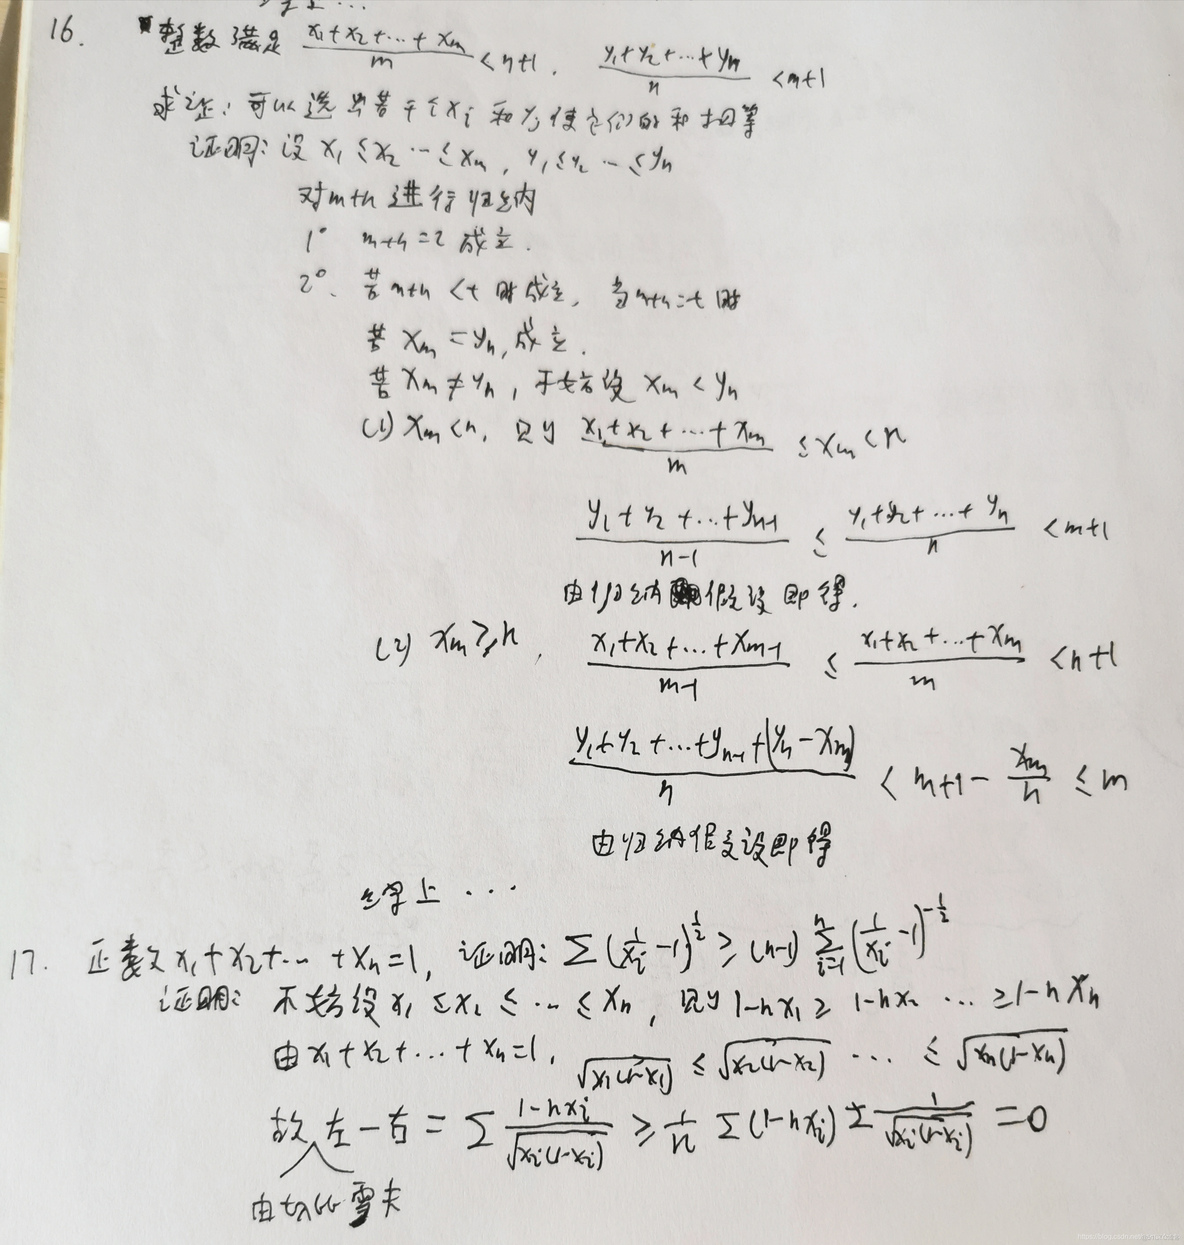 16. 整数满足 (x₁+x₂+…+xₘ)/m < n+1, (y₁+y₂+…+yₙ)/n < m+1
求证: 可以选出若干个xᵢ和yⱼ使它们的和相等
证明: 设 x₁≤x₂…≤xₘ, y₁≤y₂…≤yₙ
对m+n进行归纳
1° m+n=2成立.
2°. 若m+n<t时成立, 当m+n=t时
若 xₘ=yₙ, 成立.
若 xₘ≠yₙ, 不妨设 xₘ<yₙ
(1) xₘ<n, 则 (x₁+x₂+…+xₘ)/m ≤xₘ<n
(y₁+y₂+…+yₙ₋₁)/(n-1) ≤ (y₁+y₂+…+yₙ)/n < m+1
由归纳假设即得.
(2) xₘ≥n, (x₁+x₂+…+xₘ₋₁)/(m-1) ≤ (x₁+x₂+…+xₘ)/m < n+1
(y₁+y₂+…+yₙ₋₁+(yₙ-xₘ))/n < m+1-xₘ/n ≤ m
由归纳假设即得
综上…
17. 正数 x₁+x₂+…+xₙ=1, 证明: Σ(1/xᵢ-1)^(1/2) ≥ (n-1) Σᵢ₌₁ⁿ(1/xᵢ-1)^(-1/2)
证明: 不妨设 x₁≤x₂≤…≤xₙ, 则 1-nx₁≥1-nx₂…≥1-nxₙ
由 x₁+x₂+…+xₙ=1, √(x₁(1-x₁)) ≤ √(x₂(1-x₂)) … ≤ √(xₙ(1-xₙ))
故 左-右 = Σ (1-nxᵢ)/√(xᵢ(1-xᵢ)) ≥ 1/n Σ(1-nxᵢ) Σ 1/√(xᵢ(1-xᵢ)) =0
由切比雪夫